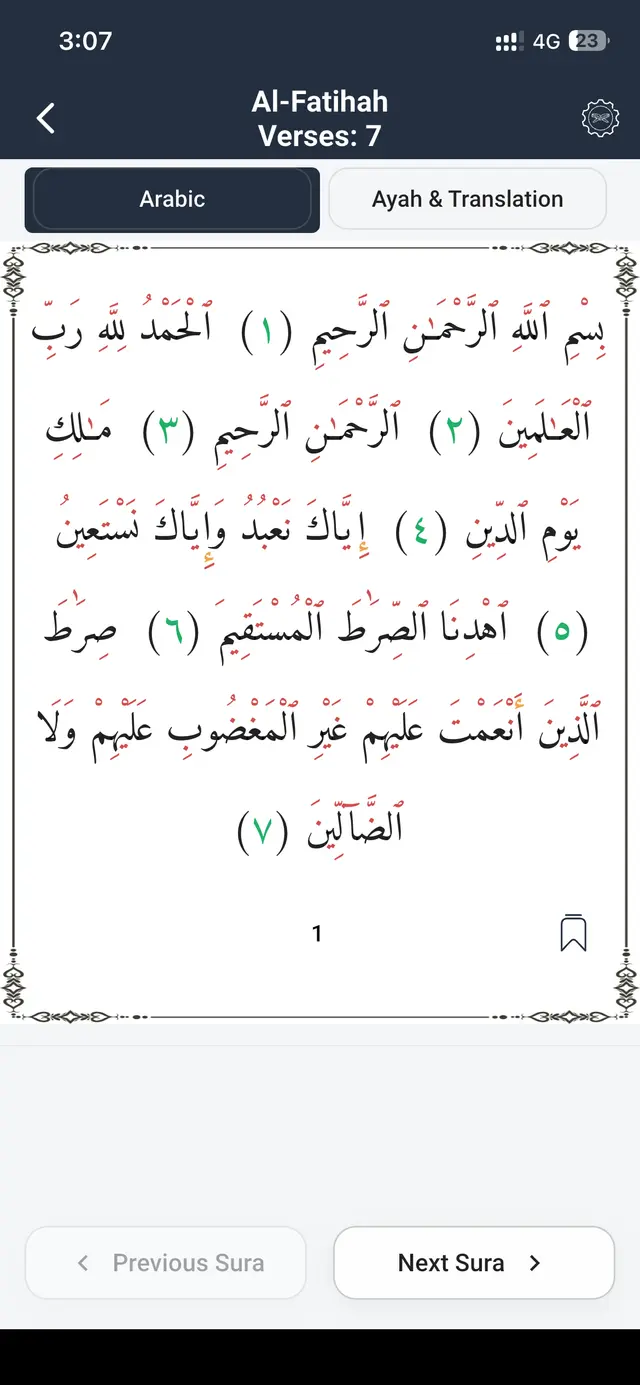 3:07 4G 23
Al-Fatihah
Verses: 7
Arabic Ayah & Translation
بِسْمِ ٱللَّهِ ٱلرَّحْمَـٰنِ ٱلرَّحِيمِ (١) ٱلْحَمْدُ لِلَّهِ رَبِّ
ٱلْعَـٰلَمِينَ (٢) ٱلرَّحْمَـٰنِ ٱلرَّحِيمِ (٣) مَـٰلِكِ
يَوْمِ ٱلدِّينِ (٤) إِيَّاكَ نَعْبُدُ وَإِيَّاكَ نَسْتَعِينُ
(٥) ٱهْدِنَا ٱلصِّرَٰطَ ٱلْمُسْتَقِيمَ (٦) صِرَٰطَ
ٱلَّذِينَ أَنْعَمْتَ عَلَيْهِمْ غَيْرِ ٱلْمَغْضُوبِ عَلَيْهِمْ وَلَا
ٱلضَّآلِّينَ (٧)
1
Previous Sura Next Sura